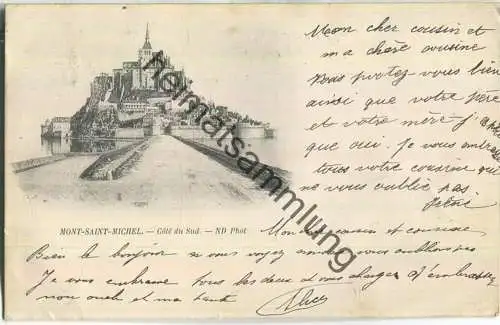 Mon cher cousin et
ma chère cousine
vous portez-vous bien
ainsi que votre père
et votre mère j'
que oui. Je vous embrasse
tous votre cousin qui
ne vous oublie pas
René
MONT-SAINT-MICHEL. — Côté du Sud. — ND Phot
Heimatsammlung
Mon cher cousin et cousine
Bien le bonjour si vous voyez nous vous oublions pas
Je vous embrasse tous les deux et vous charge d'embrasser
mon oncle et ma tante
Alice